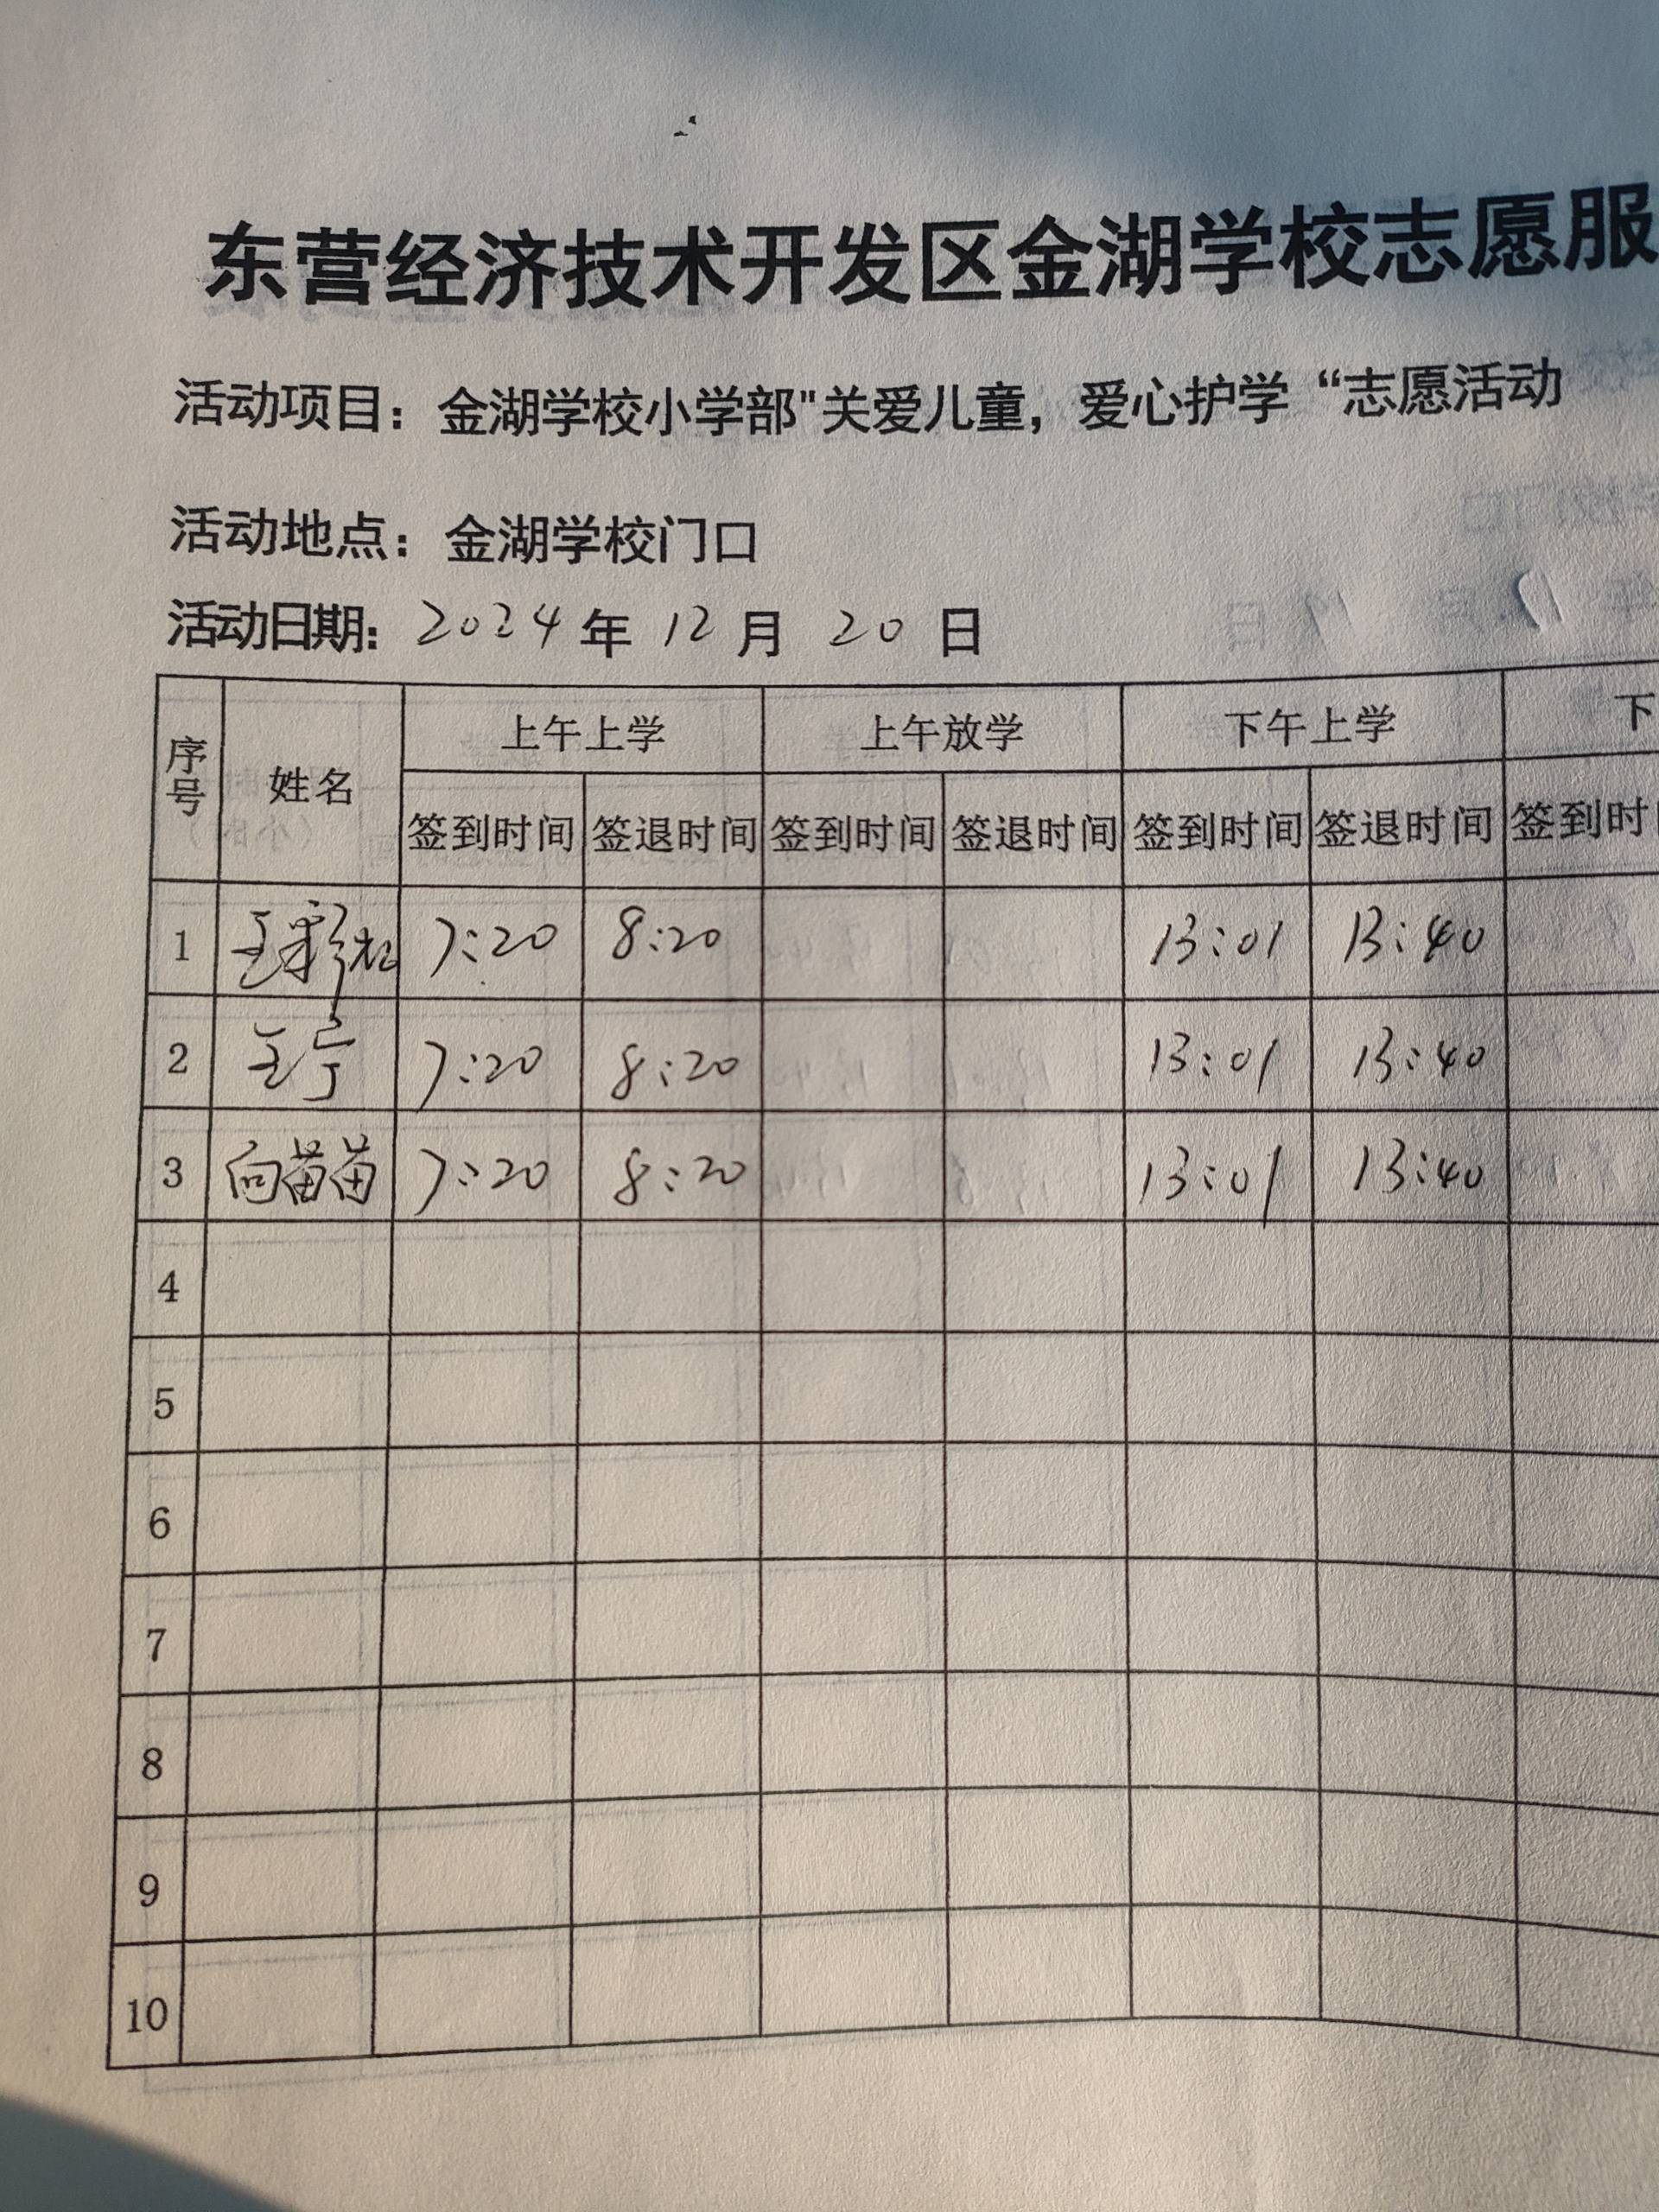 东营经济技术开发区金湖学校志愿服
活动项目：金湖学校小学部"关爱儿童，爱心护学“志愿活动
活动地点：金湖学校门口
活动日期：2024年12月20日
序号 姓名 上午上学 上午放学 下午上学 下
签到时间 签退时间 签到时间 签退时间 签到时间 签退时间 签到时
1 王彩 7:20 8:20 13:01 13:40
2 王宁 7:20 8:20 13:01 13:40
3 向苗苗 7:20 8:20 13:01 13:40
4
5
6
7
8
9
10